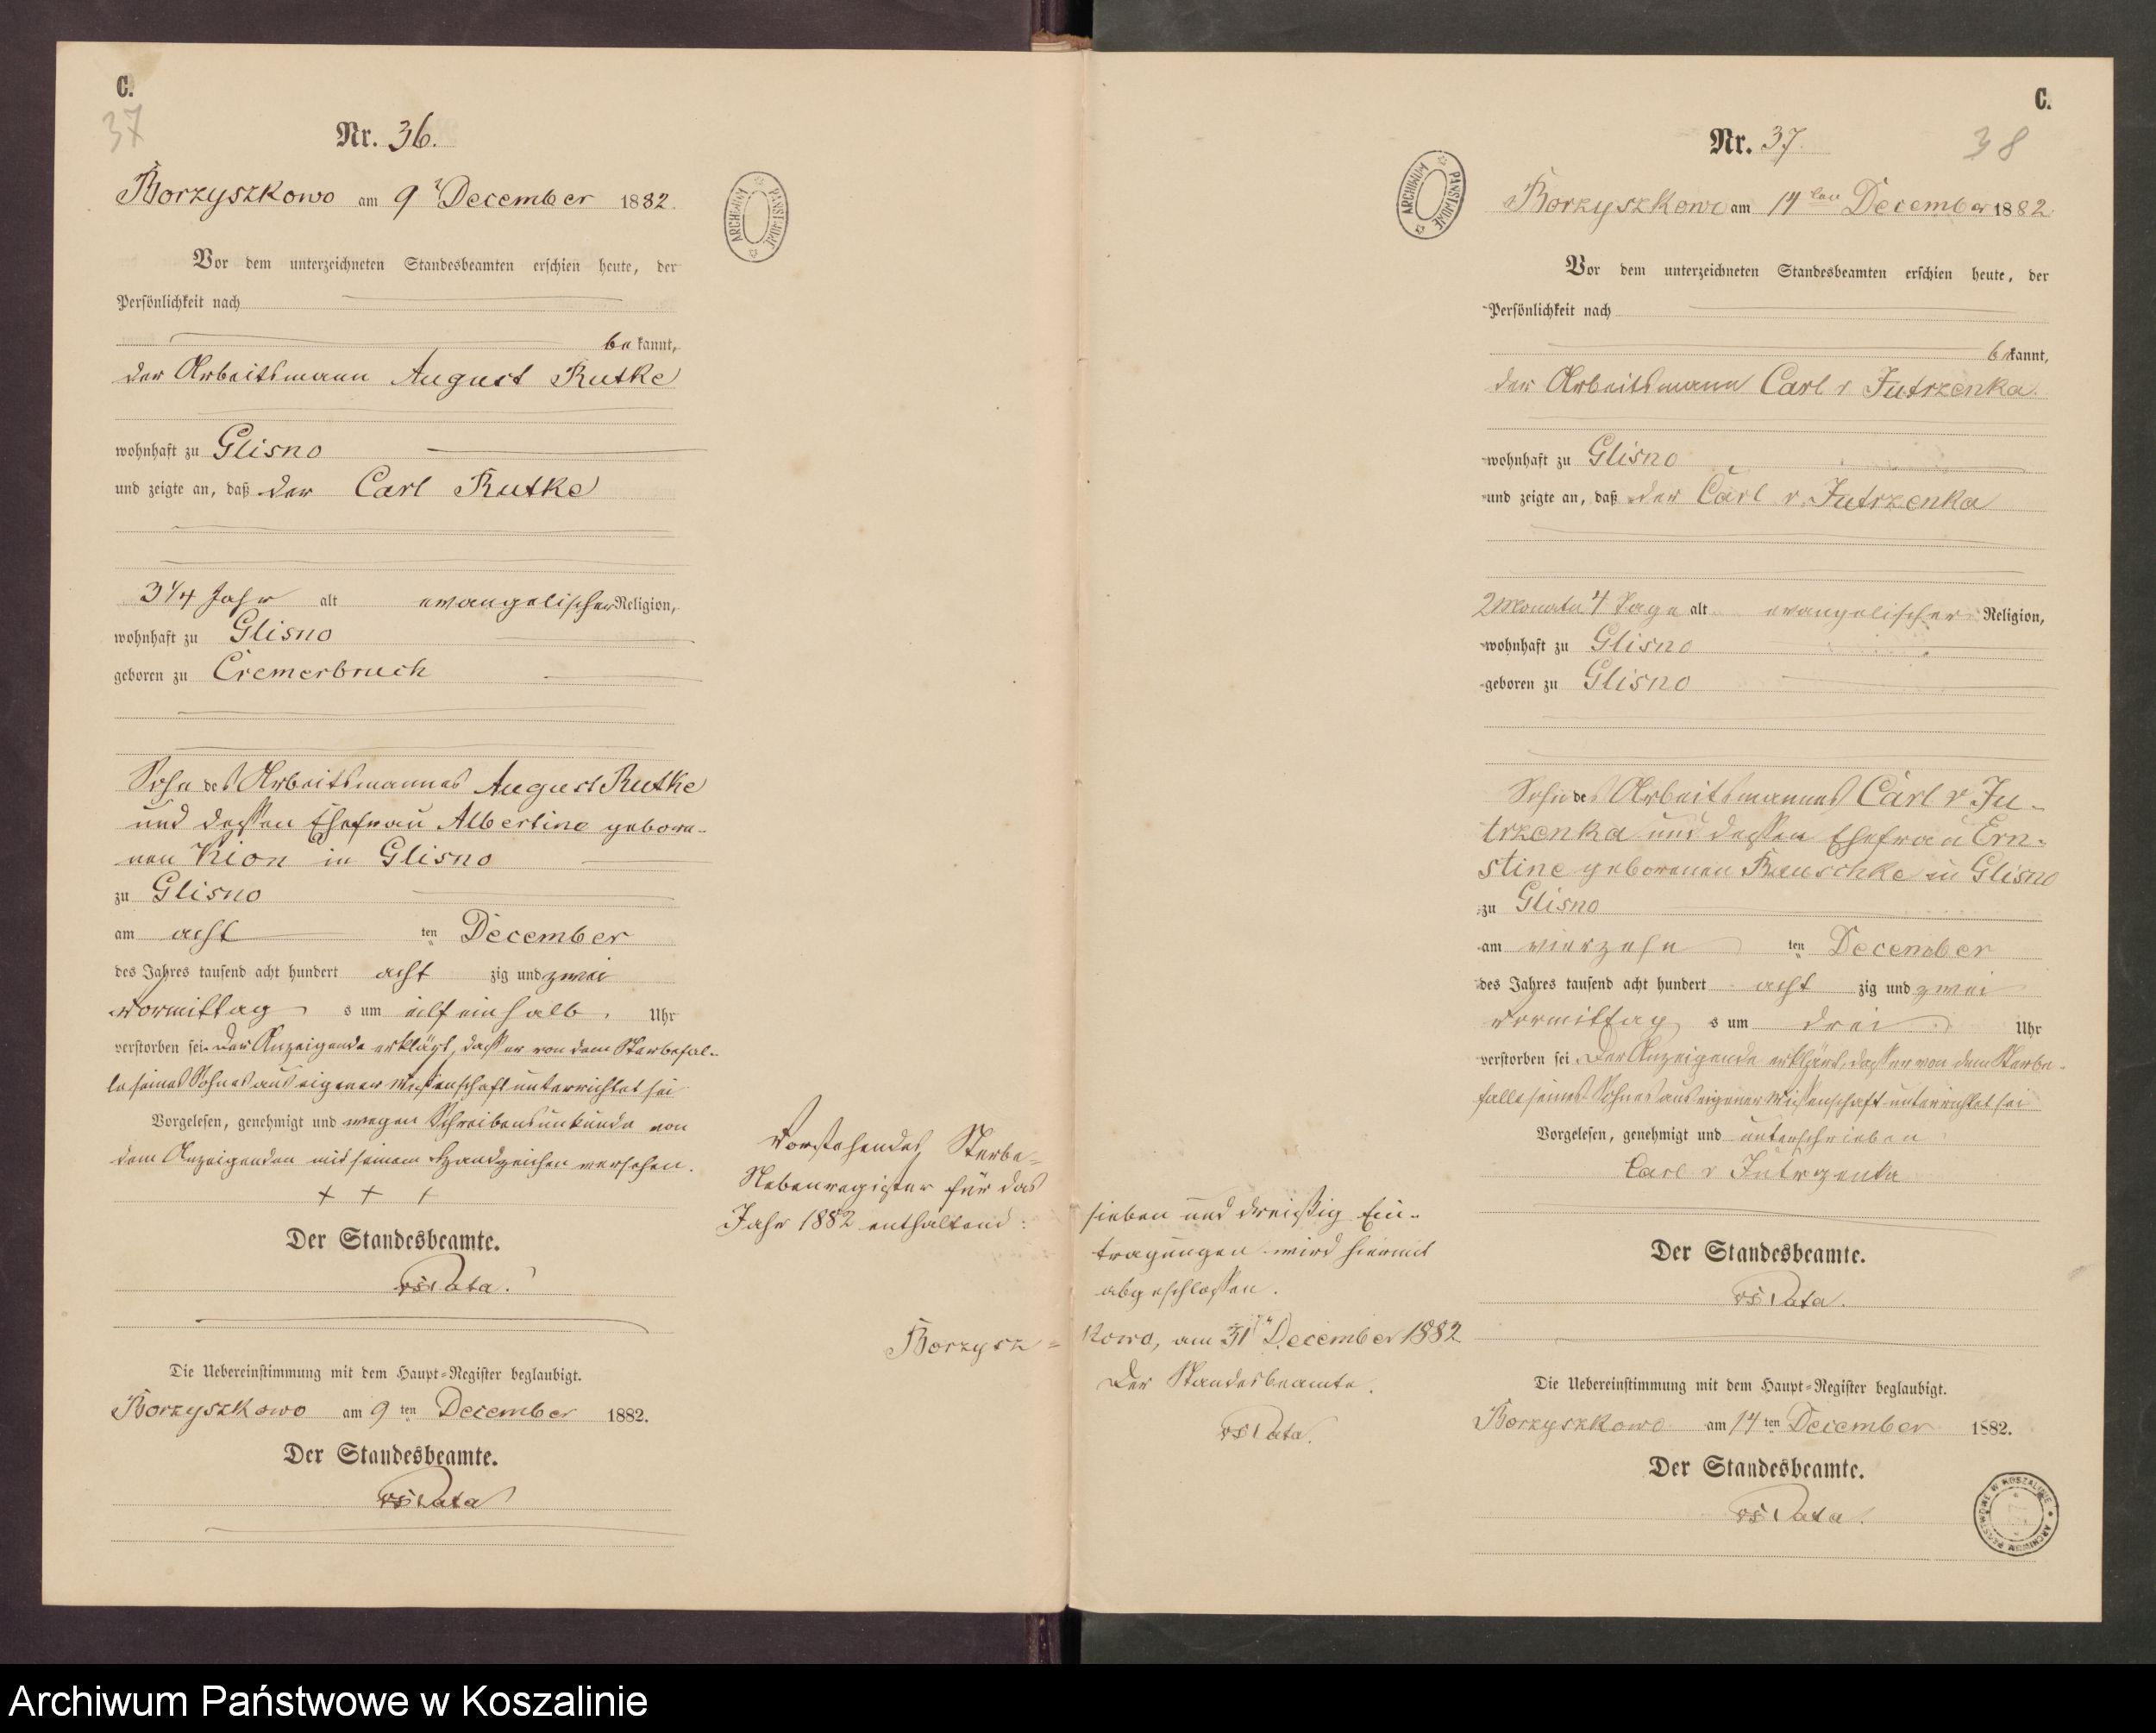 C.
37
Nr. 36.
Borzyszkowo am 9t December 1882.
Vor dem unterzeichneten Standesbeamten erschien heute, der
Persönlichkeit nach
bekannt,
der Arbeitsmann August Rutke
wohnhaft zu Glisno
und zeigte an, daß der Carl Rutke
3 1/4 Jahr alt evangelischer Religion,
wohnhaft zu Glisno
geboren zu Cremerbruch
Sohn des Arbeitsmannes August Rutke
und dessen Ehefrau Albertine gebore-
nen Kion in Glisno
zu Glisno
am acht ten December
des Jahres tausend acht hundert acht zig und zwei
Vormittag s um eilf ein halb Uhr
verstorben sei. Der Anzeigende erklärt, dass er von dem Sterbefal-
le seines Sohnes aus eigener Wissenschaft unterrichtet sei
Vorgelesen, genehmigt und wegen Schreibensunkunde von
dem Anzeigenden mit seinem Handzeichen versehen.
+ + +
Der Standesbeamte.
Die Uebereinstimmung mit dem Haupt-Register beglaubigt.
Borzyszkowo am 9 ten December 1882.
Der Standesbeamte.
ARCHIWUM PAŃSTWOWE
Vorstehendes Sterbe-
Nebenregister für das
Jahr 1882 enthaltend:
Borzysz-
sieben und dreißig Ein-
tragungen wird hiermit
abgeschlossen.
kowo, am 31t December 1882
Der Standesbeamte.
ARCHIWUM PAŃSTWOWE
C.
38
Nr. 37.
Borzyszkowo am 14ten December 1882
Vor dem unterzeichneten Standesbeamten erschien heute, der
Persönlichkeit nach
bekannt,
der Arbeitsmann Carl v Jutrzenka
wohnhaft zu Glisno
und zeigte an, daß der Carl v. Jutrzenka
2 Monate 4 Tage alt evangelischer Religion,
wohnhaft zu Glisno
geboren zu Glisno
Sohn des Arbeitsmannes Carl v Ju-
trzenka und dessen Ehefrau Ern-
stine geborenen Rauschke in Glisno
zu Glisno
am vierzehn ten December
des Jahres tausend acht hundert acht zig und zwei
Vormittag s um drei Uhr
verstorben sei Der Anzeigende erklärt, dass er von dem Sterbe-
falle seines Sohnes aus eigener Wissenschaft unterrichtet sei
Vorgelesen, genehmigt und unterschrieben
Carl v Jutrzenka
Der Standesbeamte.
Die Uebereinstimmung mit dem Haupt-Register beglaubigt.
Borzyszkowo am 14 ten December 1882.
Der Standesbeamte.
ARCHIWUM PAŃSTWOWE W KOSZALINIE
Archiwum Państwowe w Koszalinie